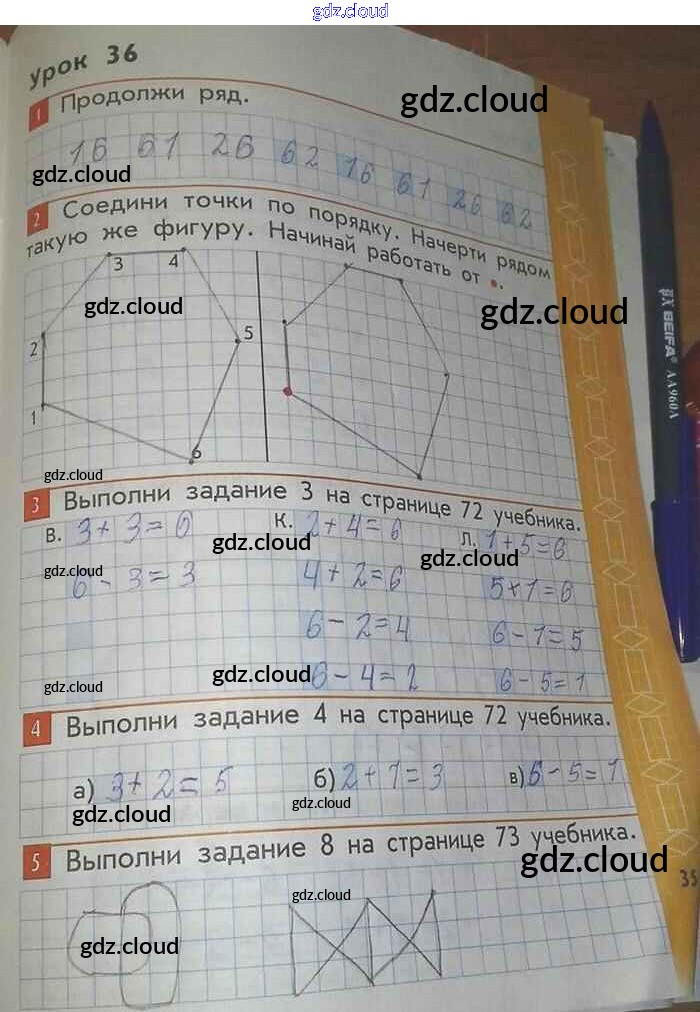 gdz.cloud
урок 36
1 Продолжи ряд.
gdz.cloud
16 61 26 62 16 61 26 62
gdz.cloud
2 Соедини точки по порядку. Начерти рядом
такую же фигуру. Начинай работать от .
3 4
gdz.cloud
gdz.cloud
2 5
1
6
gdz.cloud
3 Выполни задание 3 на странице 72 учебника.
В. 3+3=6 К. 2+4=6 Л. 1+5=6
gdz.cloud gdz.cloud
6-3=3 4+2=6 5+1=6
6-2=4 6-1=5
gdz.cloud gdz.cloud 6-4=2 6-5=1
4 Выполни задание 4 на странице 72 учебника.
а) 3+2=5 б) 2+1=3 в) 6-5=1
gdz.cloud gdz.cloud
5 Выполни задание 8 на странице 73 учебника.
gdz.cloud
35
gdz.cloud
gdz.cloud
BEIFA AA960A